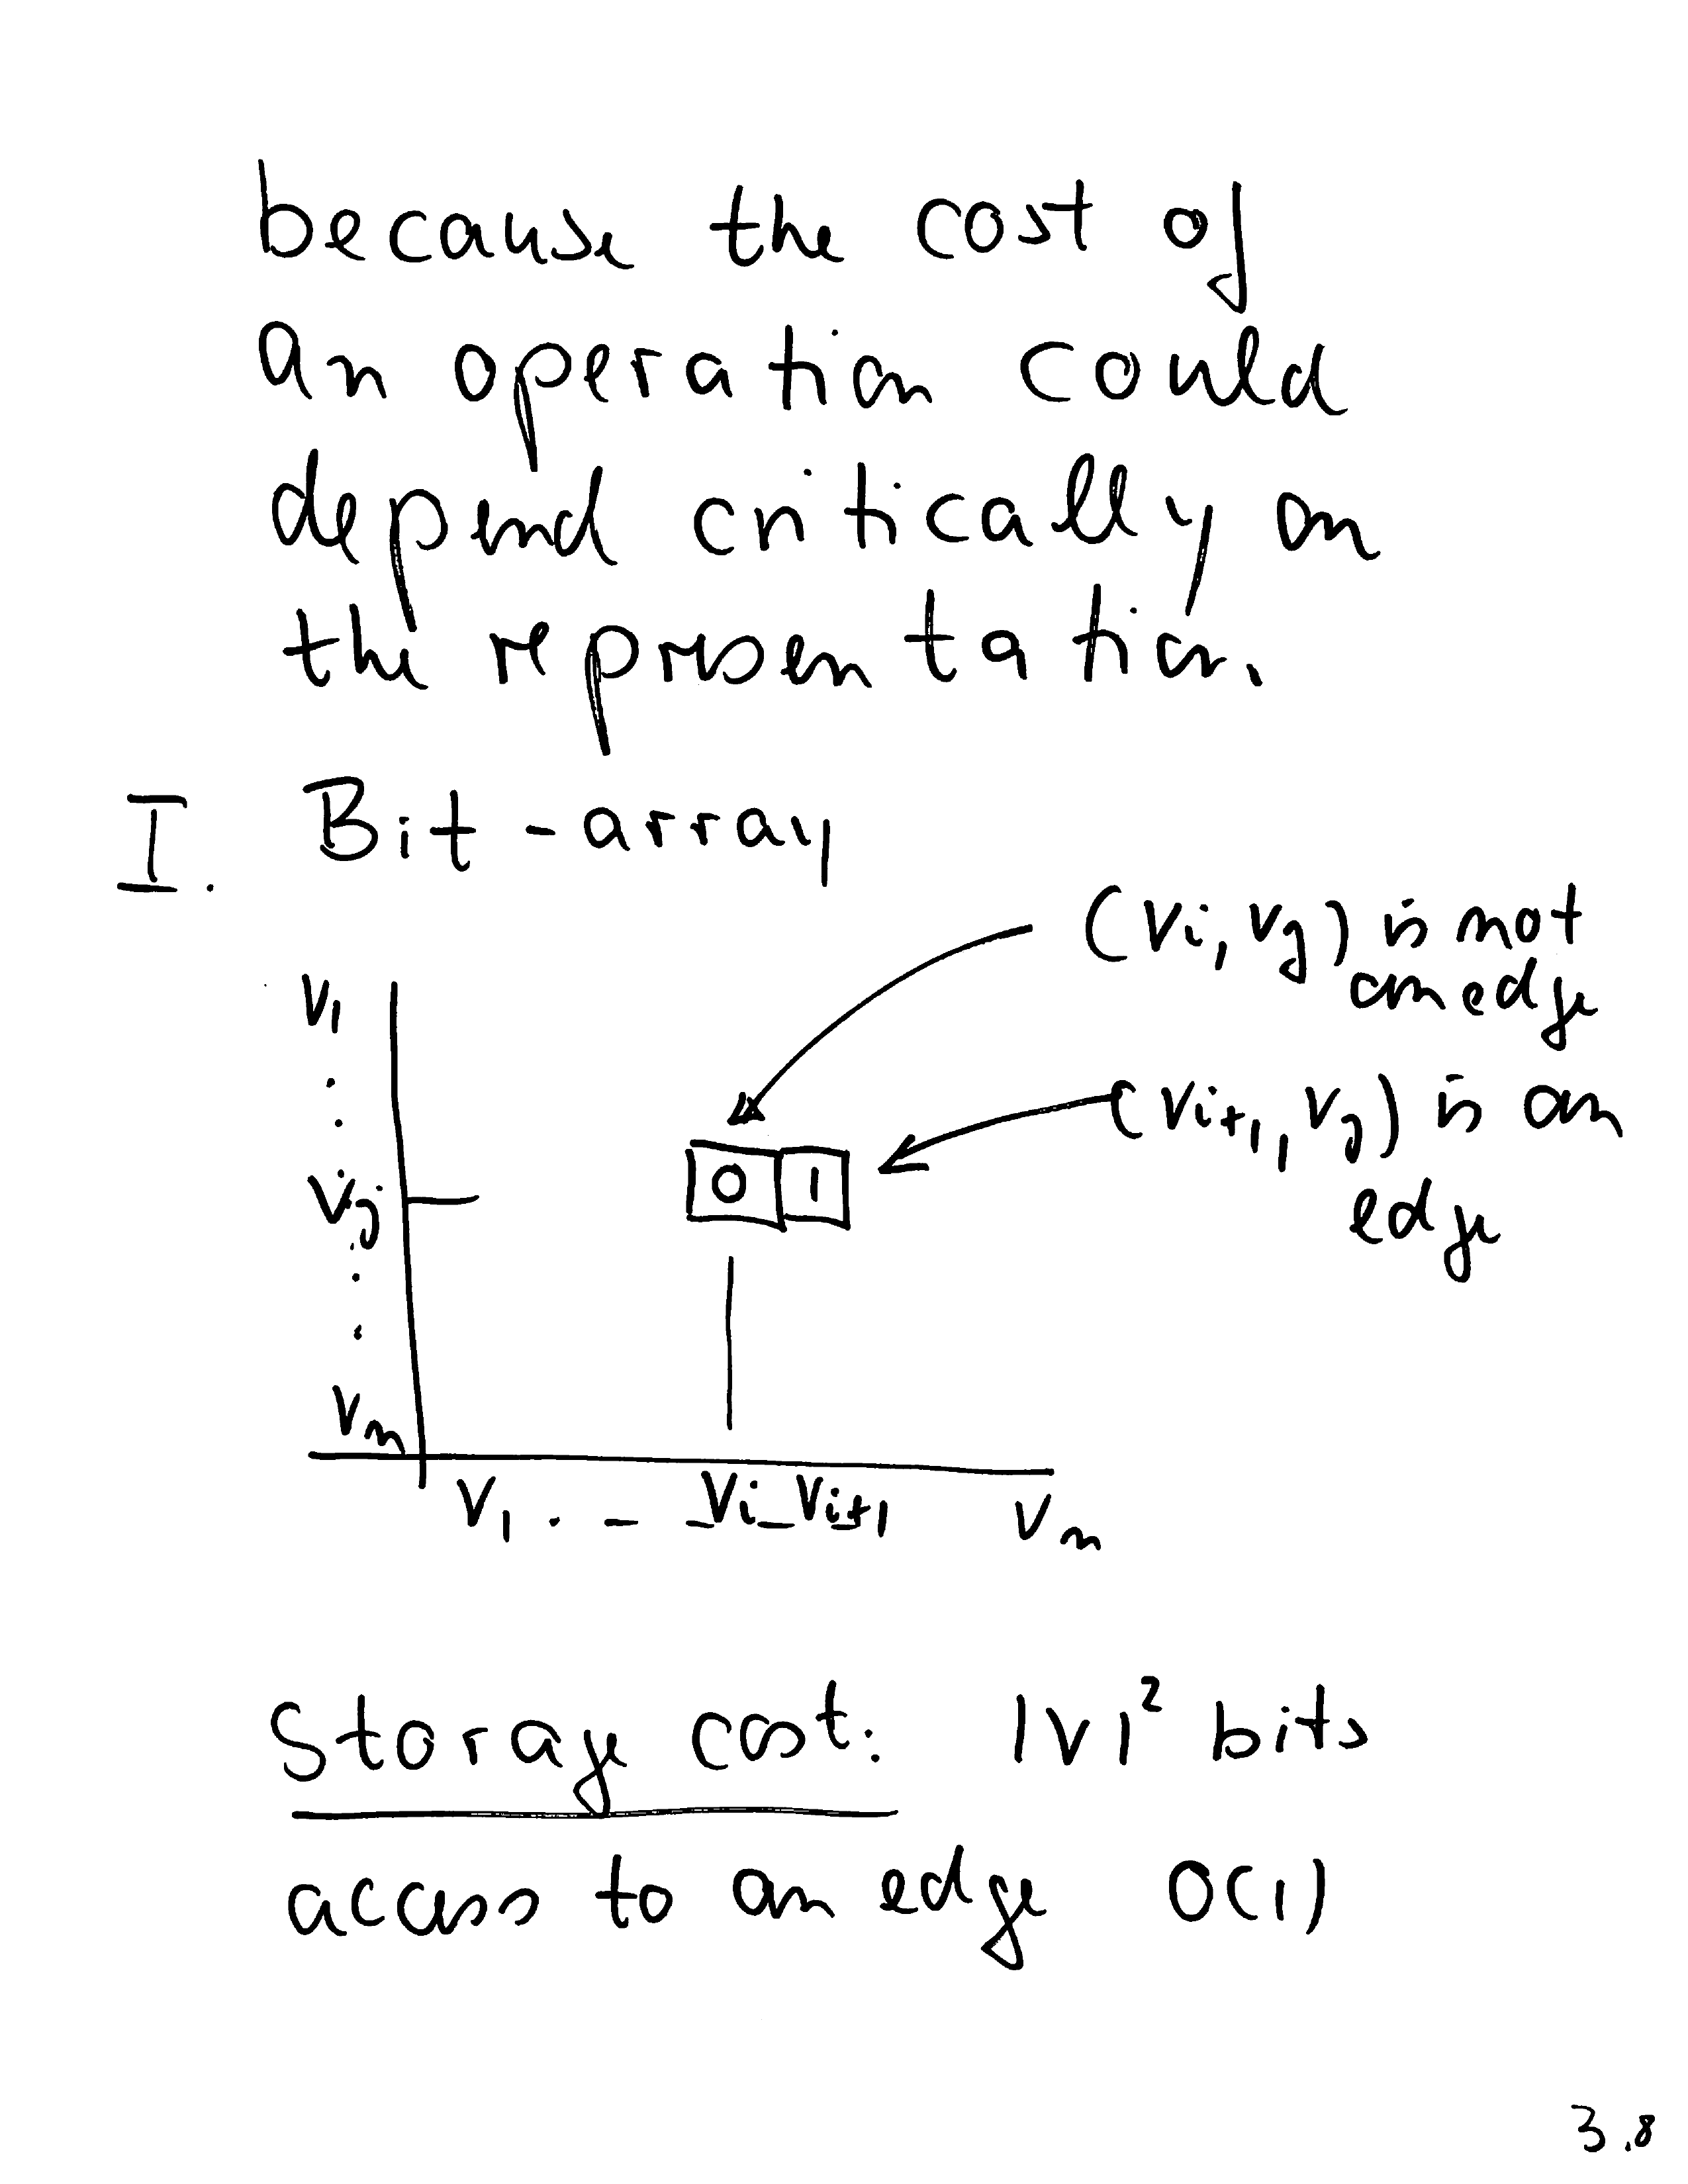 because the cost of
an operation could
depend critically on
the representation.
I. Bit-array
(Vi, Vj) is not
an edge
V1
(Vi+1, Vj) is an
edge
0 1
Vj
Vn
V1 . - - Vi - Vi+1 Vn
Storage cost: |V|² bits
access to an edge O(1)
3.8